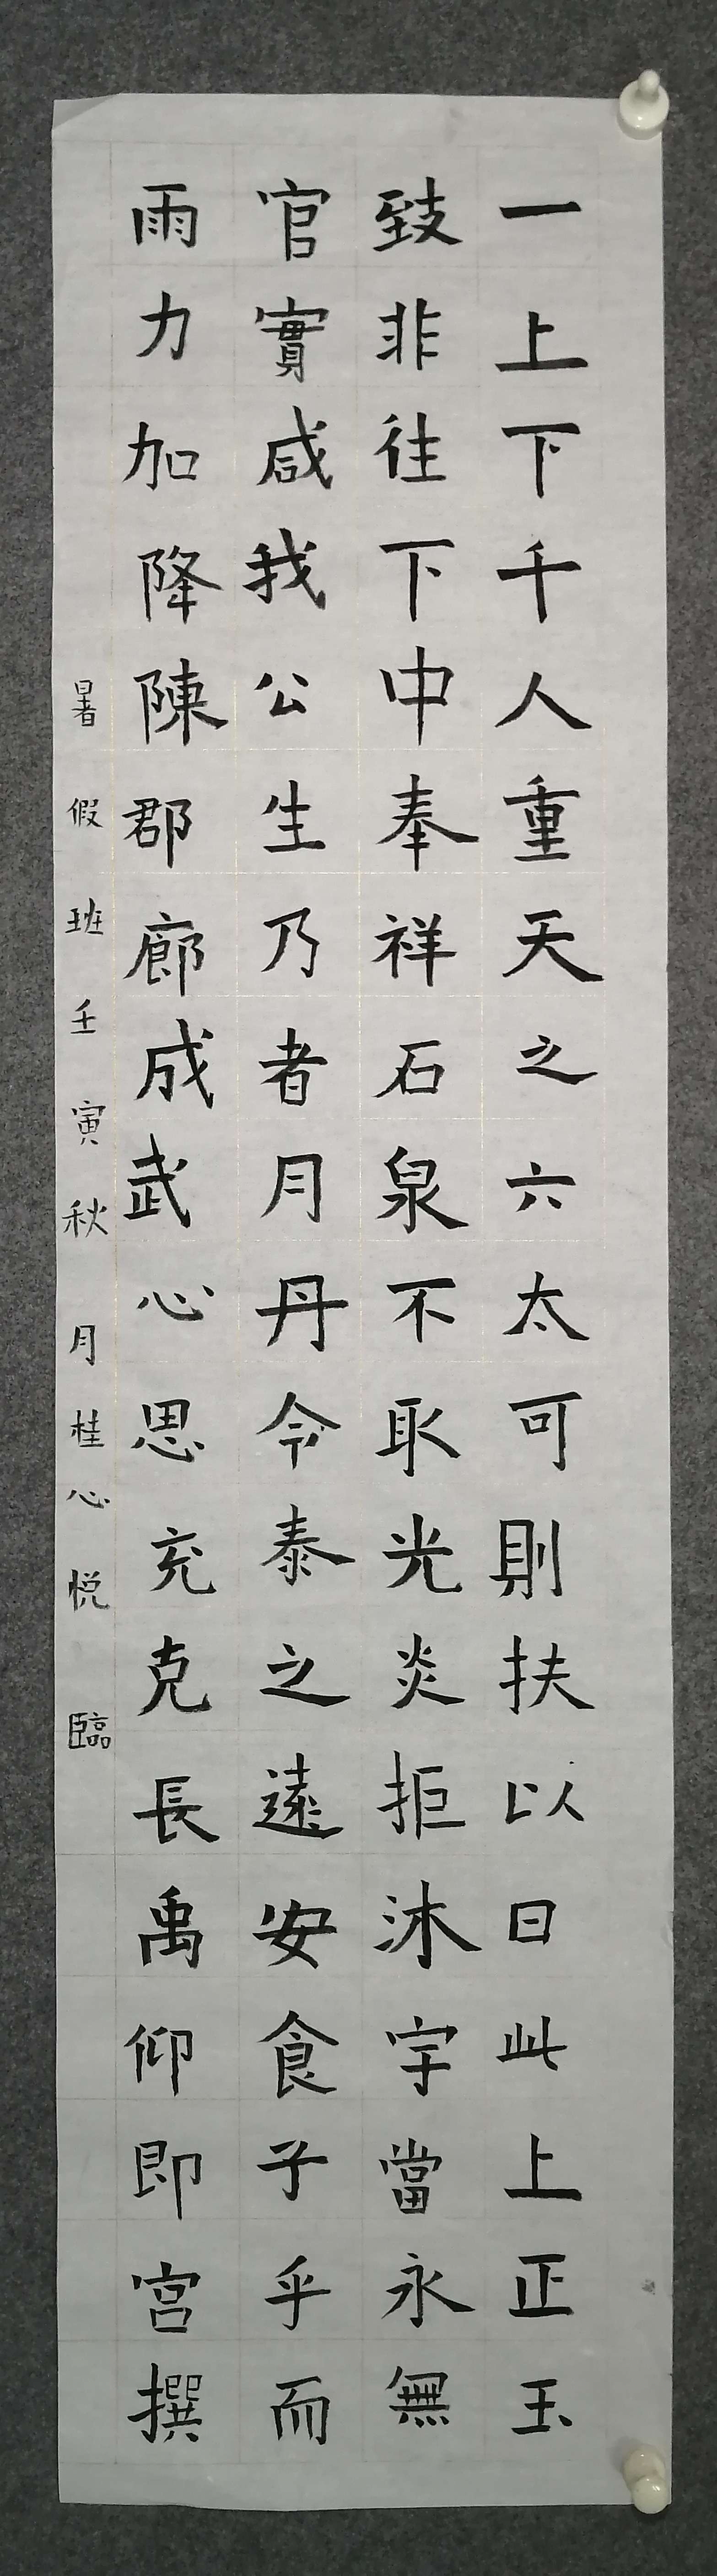 一上下千人重天之六太可則扶以日此上正玉
致非往下中奉祥石泉不取光炎拒沐宇當永無
官實咸我公生乃者月丹令泰之遠安食子乎而
雨力加降陳郡廊成武心思充克長禹仰即宮撰
暑假班壬寅秋月桂心悦臨